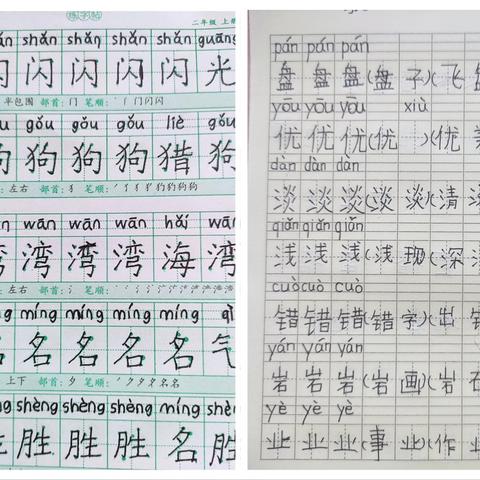 练字帖
二年级 上册
shǎn shǎn shǎn shǎn guāng
闪 闪 闪 闪 光
半包围 部首：门 笔顺：丶 丨 门 闪 闪
gǒu gǒu gǒu liè gǒu
狗 狗 狗 猎 狗
左右 部首：犭 笔顺：
wān wān wān hǎi
湾 湾 湾 湾 海
左右 部首：氵 笔顺：
míng míng míng míng
名 名 名 名 气
上下 部首：夕 笔顺：丿 ク 夕 夕 名 名
shèng shèng shèng míng shèng
胜 胜 胜 名 胜
pán pán pán
盘 盘 盘(盘 子)(飞
yōu yōu yōu xiù
优 优 优(优 )(优
dàn dàn dàn
淡 淡 淡(淡 淡)(清
qiǎn qiǎn qiǎn
浅 浅 浅(浅 现)(深
cuò cuò cuò
错 错 错(错 字)(出 错
yán yán yán
岩 岩 岩(岩 画)(岩 石
yè yè yè
业 业 业(事 业)(作 业